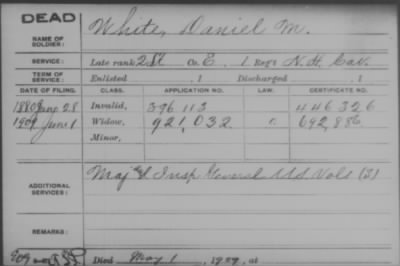 DEAD
NAME OF SOLDIER: White, Daniel M.
SERVICE: Late rank 2 Lt Co. E, 1 Reg't N.H. Cav.
TERM OF SERVICE: Enlisted , 1 Discharged , 1
DATE OF FILING. CLASS. APPLICATION NO. LAW. CERTIFICATE NO.
1880 28 Invalid, 396 113 446326
1909 June 1 Widow, 921,032 692,886
Minor,
ADDITIONAL SERVICES: Maj & Insp General US Vols (S)
REMARKS:
Died May 1, 1909, at